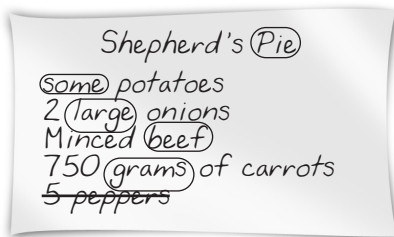 Shepherd's Pie
some potatoes
2 large onions
Minced beef
750 grams of carrots
5 peppers